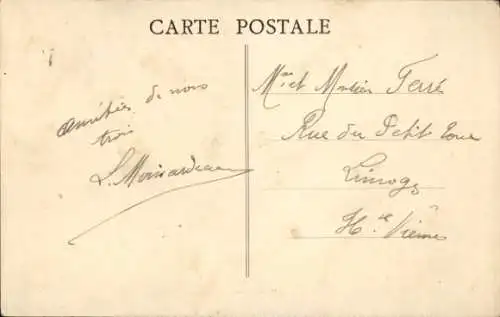 CARTE POSTALE
Amitiés de nous
trois
Mr et Madame Ferré
Rue du Petit Tour
Limoges
Hte Vienne